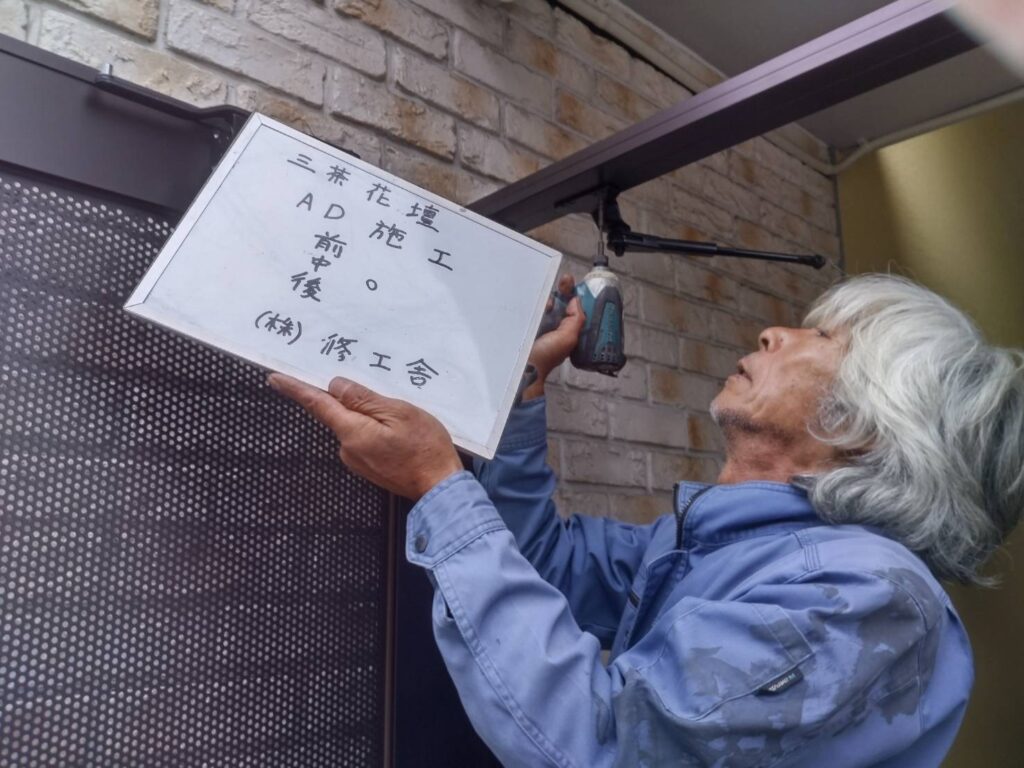 三茶花壇
AD施工
前
中 。
後
(株)修工舎